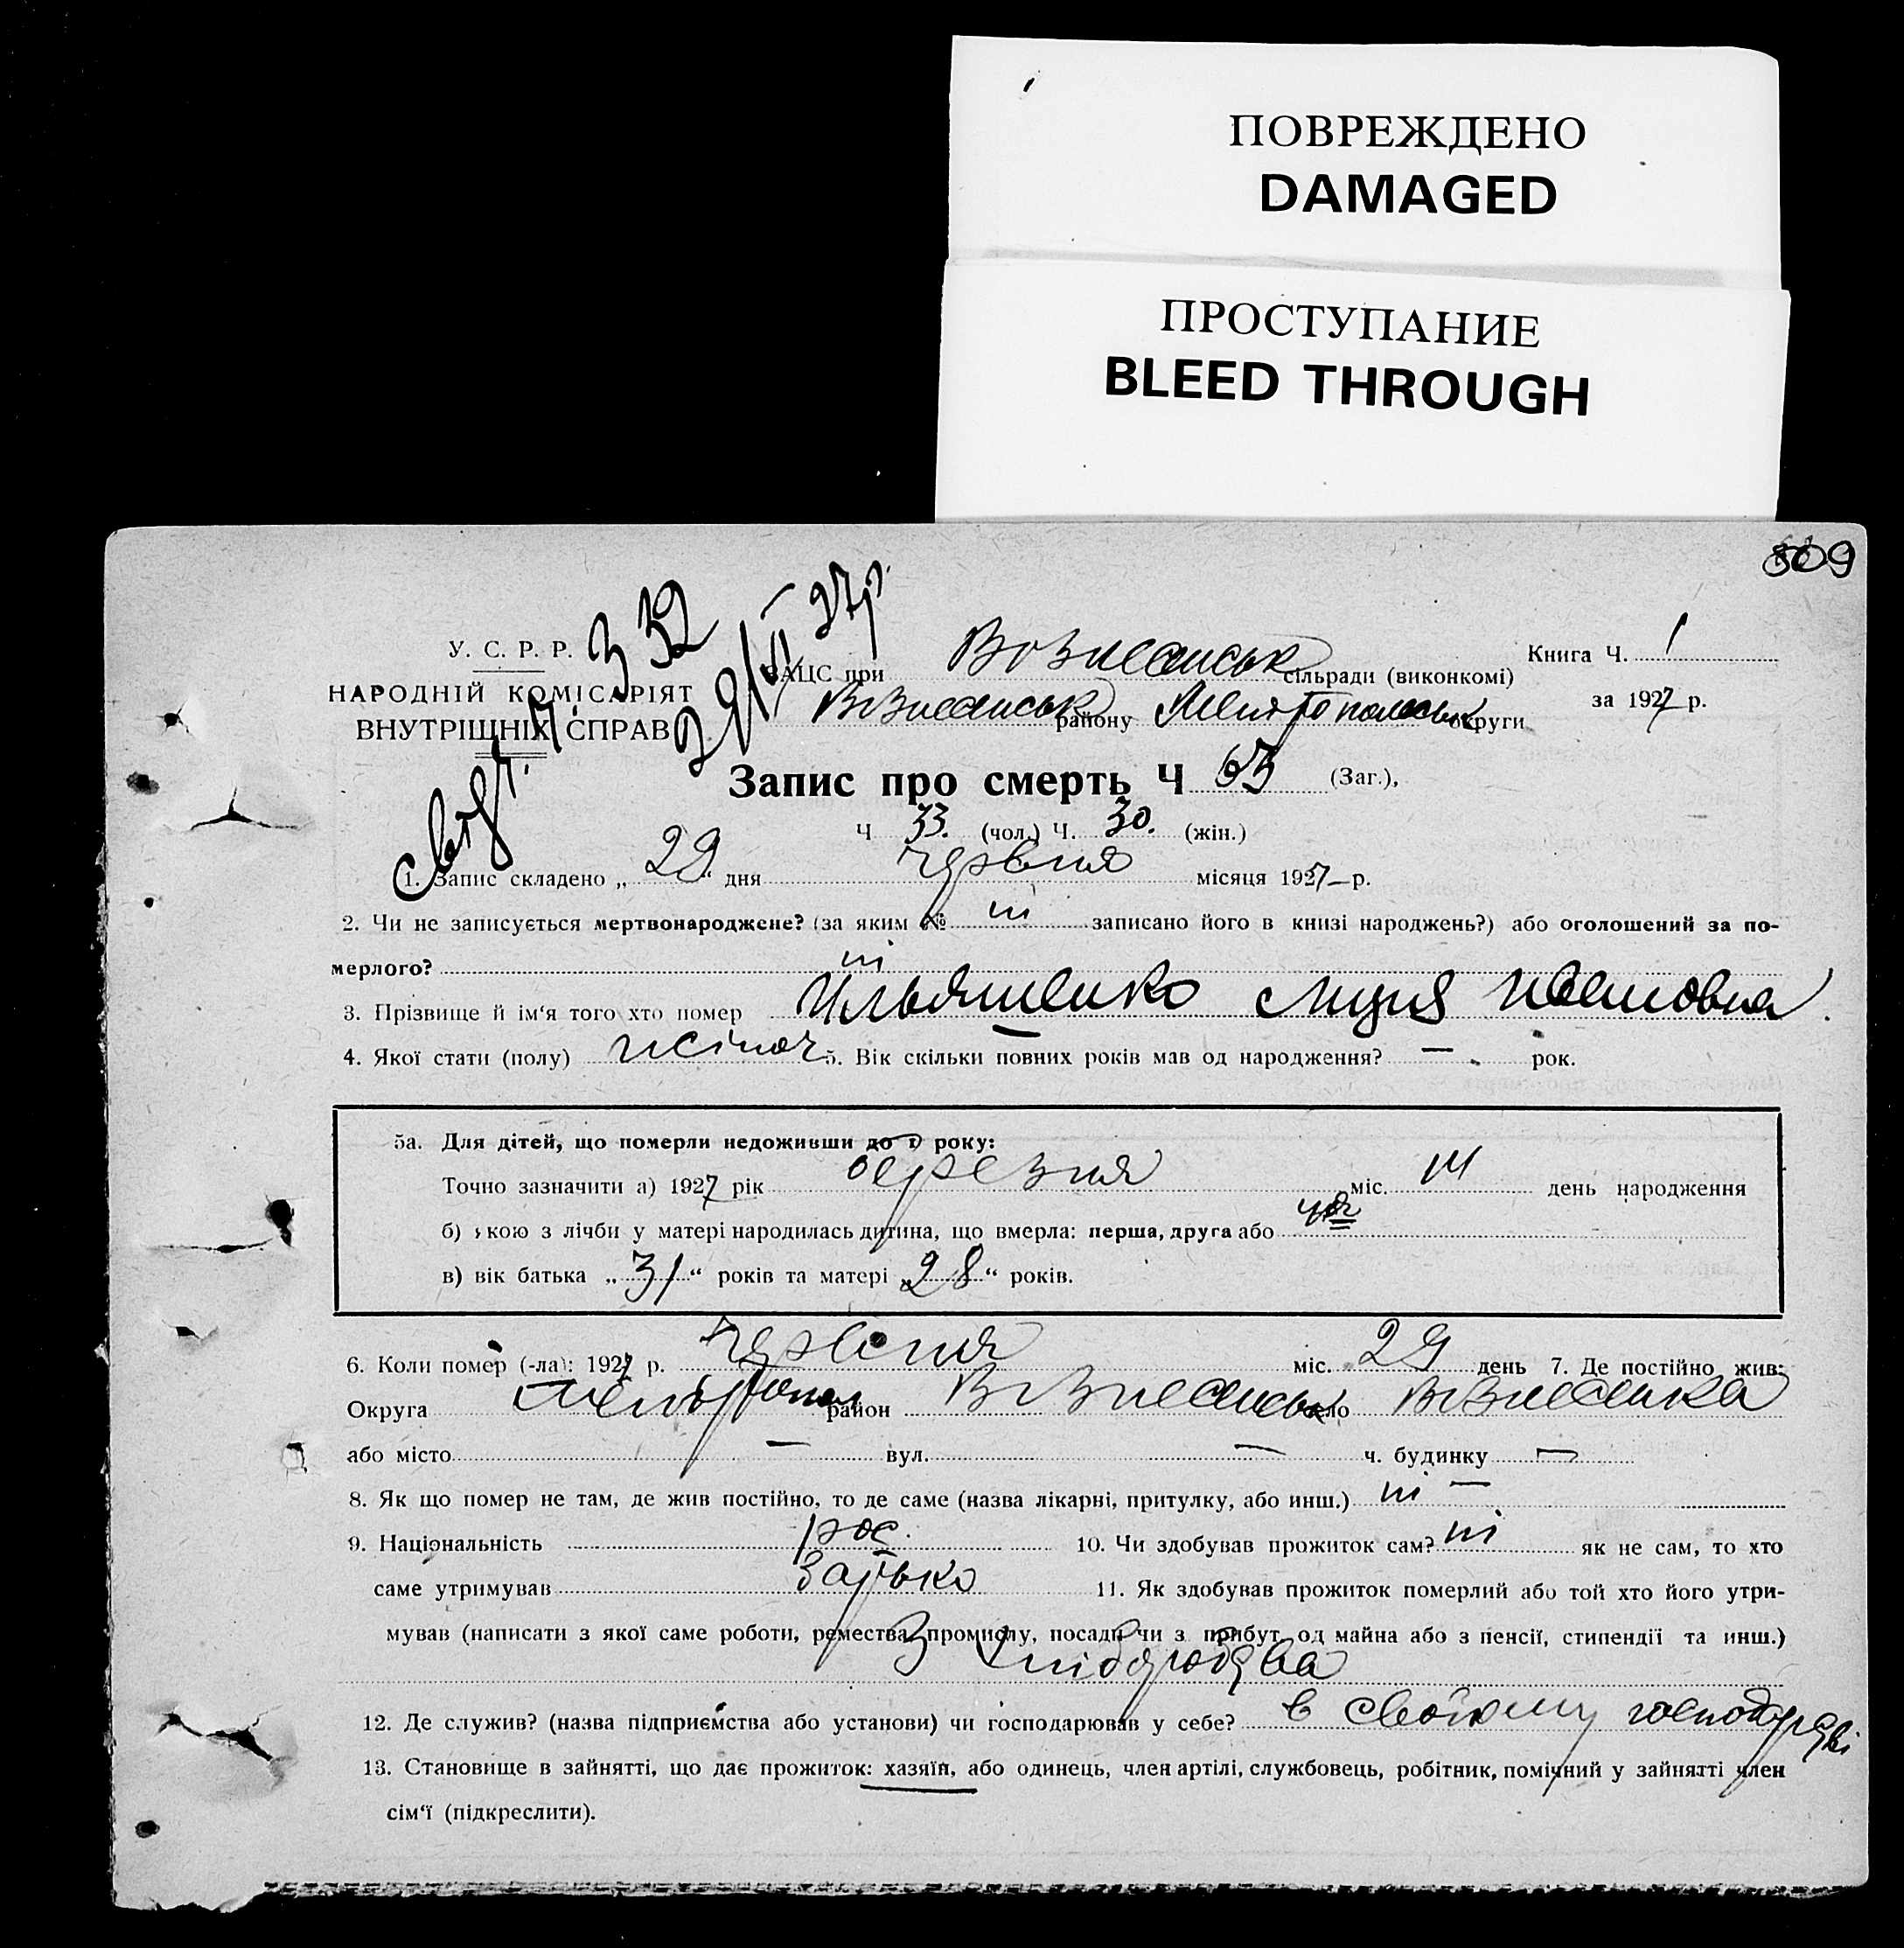 ПОВРЕЖДЕНО
DAMAGED
ПРОСТУПАНИЕ
BLEED THROUGH
809
У. С. Р. Р.
НАРОДНІЙ КОМІСАРІЯТ
ВНУТРІШНІХ СПРАВ
332
29/VI 27 р.
ЗАЦС при Вознесенськ сільради (виконкомі)
Книга Ч. 1
Вознесенськ району Мелітопольськ округи
за 1927 р.
Запис про смерть Ч 63 (Заг.),
Ч 33. (чол.) Ч. 30. (жін.)
1. Запис складено „29“ дня червня місяця 1927 р.
2. Чи не записується мертвонароджене? (за яким № ні записано його в книзі народжень?) або оголошений за по-
мерлого? ні
3. Прізвище й ім‘я того хто помер Ильяшенко Ивановна
4. Якої стати (полу) жіноч 5. Вік скільки повних років мав од народження? — . рок.
5а. Для дітей, що померли недоживши до 1 року:
Точно зазначити а) 1927 рік березня міс. 14 день народження
б) якою з лічби у матері народилась дитина, що вмерла: перша, друга або
в) вік батька „31“ років та матері „28“ років.
6. Коли помер (-ла): 1927 р. червня міс. 29 день 7. Де постійно жив:
Округа Мелітопол район Вознесенськ село Вознесенка
або місто — вул. — ч. будинку —
8. Як що помер не там, де жив постійно, то де саме (назва лікарні, притулку, або инш.) ні —
9. Національність рос. 10. Чи здобував прожиток сам? ні як не сам, то хто
саме утримував батько 11. Як здобував прожиток померлий або той хто його утри-
мував (написати з якої саме роботи, ремества, промислу, посади чи з прибут. од майна або з пенсії, стипендії та инш.)
З хліборобства
12. Де служив? (назва підприємства або установи) чи господарював у себе? в своїому господарстві
13. Становище в зайнятті, що дає прожиток: хазяїн, або одинець, член артілі, службовець, робітник, помічний у зайнятті член
сім‘ї (підкреслити).